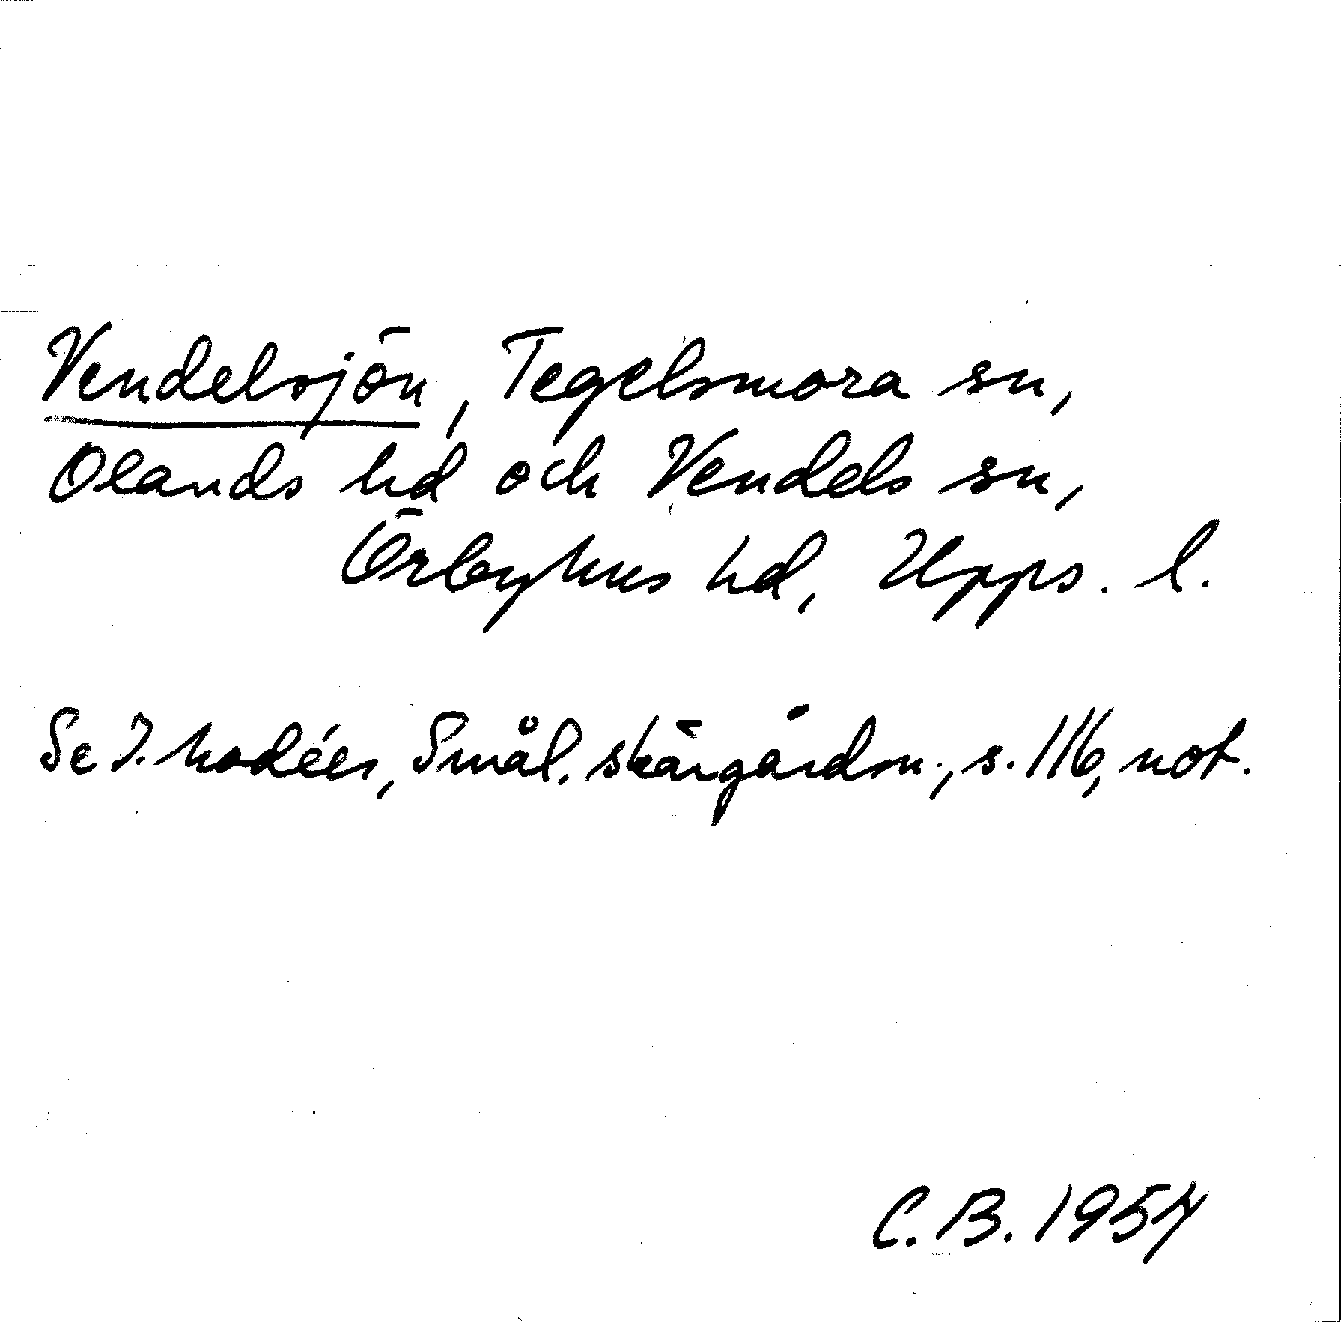 Vendelsjön, Tegelsmora sn,
Olands hd och Vendels sn,
Örbyhus hd, Upps. l.
Se I. Modéer, Smål. skärgårdsn., s. 116, not.
C. B. 1954